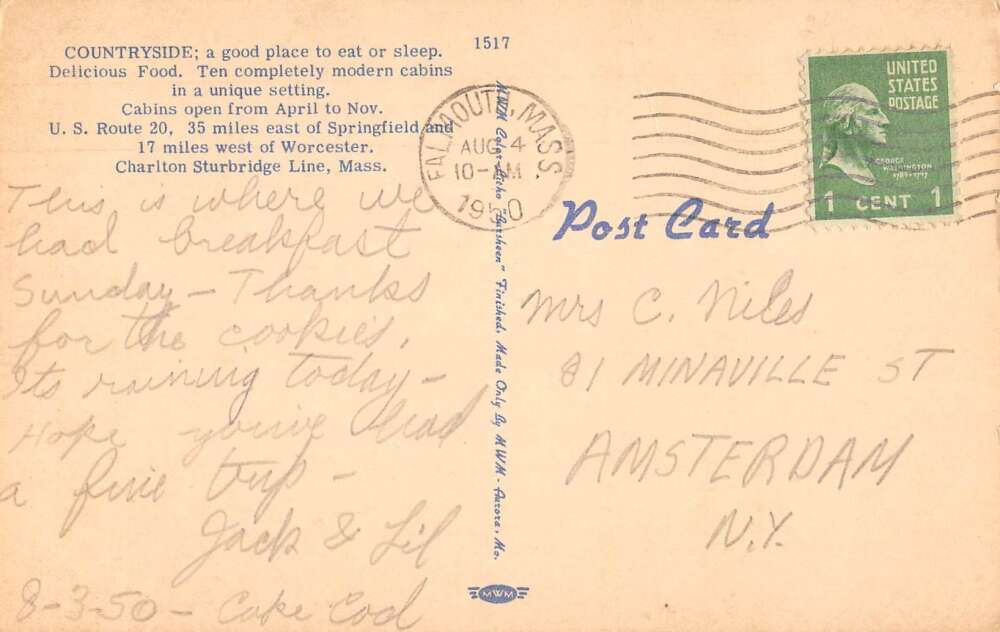 COUNTRYSIDE; a good place to eat or sleep.
Delicious Food. Ten completely modern cabins
in a unique setting.
Cabins open from April to Nov.
U. S. Route 20, 35 miles east of Springfield and
17 miles west of Worcester.
Charlton Sturbridge Line, Mass.
This is where we
had breakfast
Sunday - Thanks
for the cookies.
Its raining today -
Hope you've had
a fine trip -
Jack & Lil
8-3-50 - Cape Cod
1517
MWM Color-Litho "Garsheen" Finished. Made Only By MWM - Aurora, Mo.
MWM
FALMOUTH, MASS.
AUG 4
10-AM
1950
UNITED
STATES
POSTAGE
GEORGE
WASHINGTON
1789-1797
1 CENT 1
Post Card
Mrs C. Niles
81 MINAVILLE ST
AMSTERDAM
N.Y.